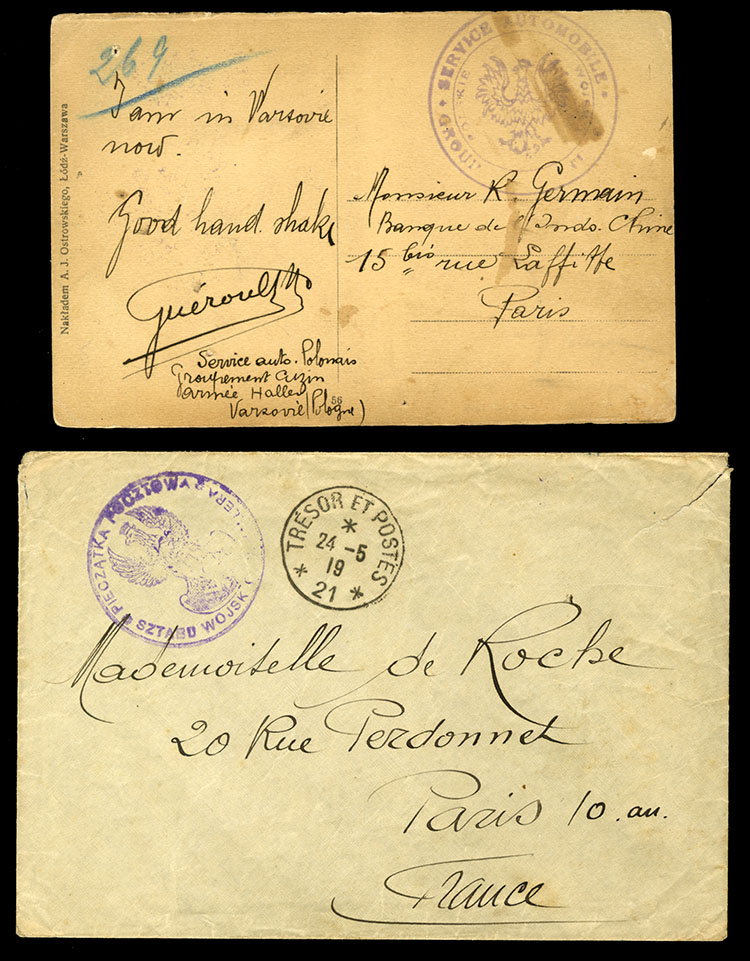 269
I am in Varsovie
now.
Good hand. shake
Guéroult
Service auto. Polonais
Groupement Cuzin
armée Haller
Varsovie (Pologne)
56
Nakładem A. J. Ostrowskiego, Łódź-Warszawa
SERVICE AUTOMOBILE
Monsieur R. Germain
Banque de l'Indo. Chine
15 bis rue Laffitte
Paris
PIECZĄTKA POCZTOWA
SZTABU WOJSK
TRÉSOR ET POSTES
24 - 5
19
21
Mademoiselle de Roche
20 Rue Perdonnet
Paris 10. arr.
France